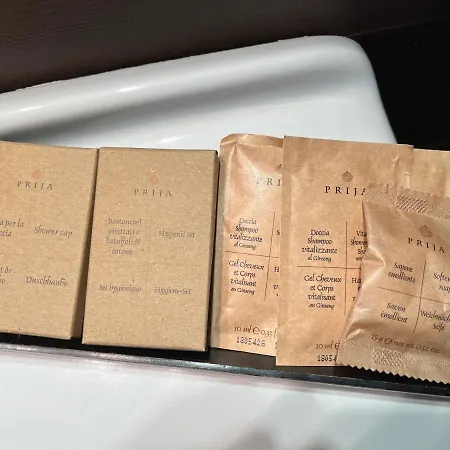 PRIJA
per la
Shower cap
Duschhaube
PRIJA
Bastoncini
ovattati e
batuffoli di
cotone
Hygienic set
Set hygiénique
Hygiene-Set
Doccia
Shampoo
vitalizzante
al Ginseng
Gel Cheveux
et Corps
vitalisant
au Ginseng
10 ml e 0.33
1805426
PRIJA
Doccia
Shampoo
vitalizzante
al Ginseng
Gel Cheveux
et Corps
vitalisant
au Ginseng
10 ml e
1805426
PRIJA
Sapone
emolliente
soap
Savon
émollient
seife
15 g e net wt. 0.52 oz